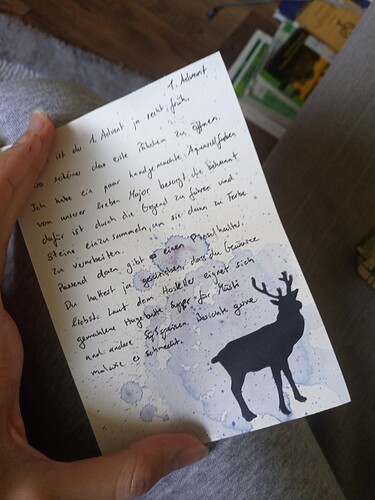 1. Advent
ist der 1. Advent ja recht früh,
wo schönes das erste Päckchen zu öffnen.
Ich habe ein paar handgemachte Aquarellfarben
von unser lieben Major besorgt, die bekannt
dafür ist durch die Gegend zu fahren und
Steine einzusammeln, um sie dann zu Farbe
zu verarbeiten.
Passend denn gibt es einen Pinselhalter.
Du hattest ja geschrieben, dass du Gewürze
liebst. Laut dem Hersteller eignet sich
gemahlene Hagebutte super für Müsli
und andere Süßspeisen. Berichte gerne
mal wie es schmeckt.